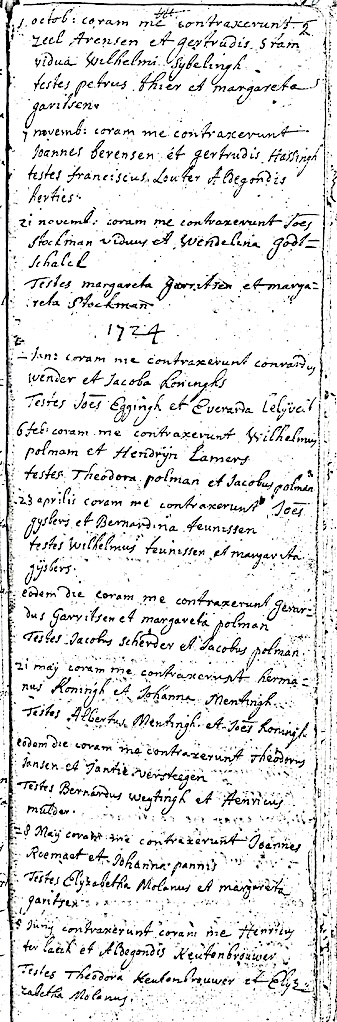 1 octob: coram me contraxerunt
zeel Arensen et gertrudis Stam
vidua Wilhelmi Sybelingh
testes petrus thier et margareta
garitsen
7 novemb: coram me contraxerunt
Joannes berensen et gertrudis Hassingh
testes franciscus Louter Aldegondis
herties
21 novemb: coram me contraxerunt Joes
Stockman viduus et Wendelina Godt=
schalck
Testes margareta garritsen et marga=
reta Stockman
1724
Jan: coram me contraxerunt conrardus
wender et Jacoba Koninghs
Testes Joes Eggingh et Everarda
6 feb: coram me contraxerunt Wilhelmus
polmam et Hendryn Lamers
testes Theodora polman et Jacobus polman
23 aprilis coram me contraxerunt Joes
gysbers et Bernardina teunissen
testes Wilhelmus teunissen et margarita
gysbers.
eodem die coram me contraxerunt gerar=
dus Garritsen et margareta polman
Testes Jacobus scherder et Jacobus polman
21 maÿ coram me contraxerunt herma=
nus Koningh et Johanna Mentingh
Testes Albertus Mentingh et Joes Koningh
eodem die coram me contraxerunt Theodorus
Jansen et Jantie verstegen
Testes Bernardus weytingh et Henricus
mulder.
28 Maÿ coram me contraxerunt Joannes
Roemaet et Johanna pannis
Testes Elyzabetha Molanus et margareta
garitsen
Junÿ contraxerunt coram me Henricus
ter laeck et Aldegondis Keutenbrouwer
Testes Theodora Keutenbrouwer et Elyz=
zabetha Molanus.